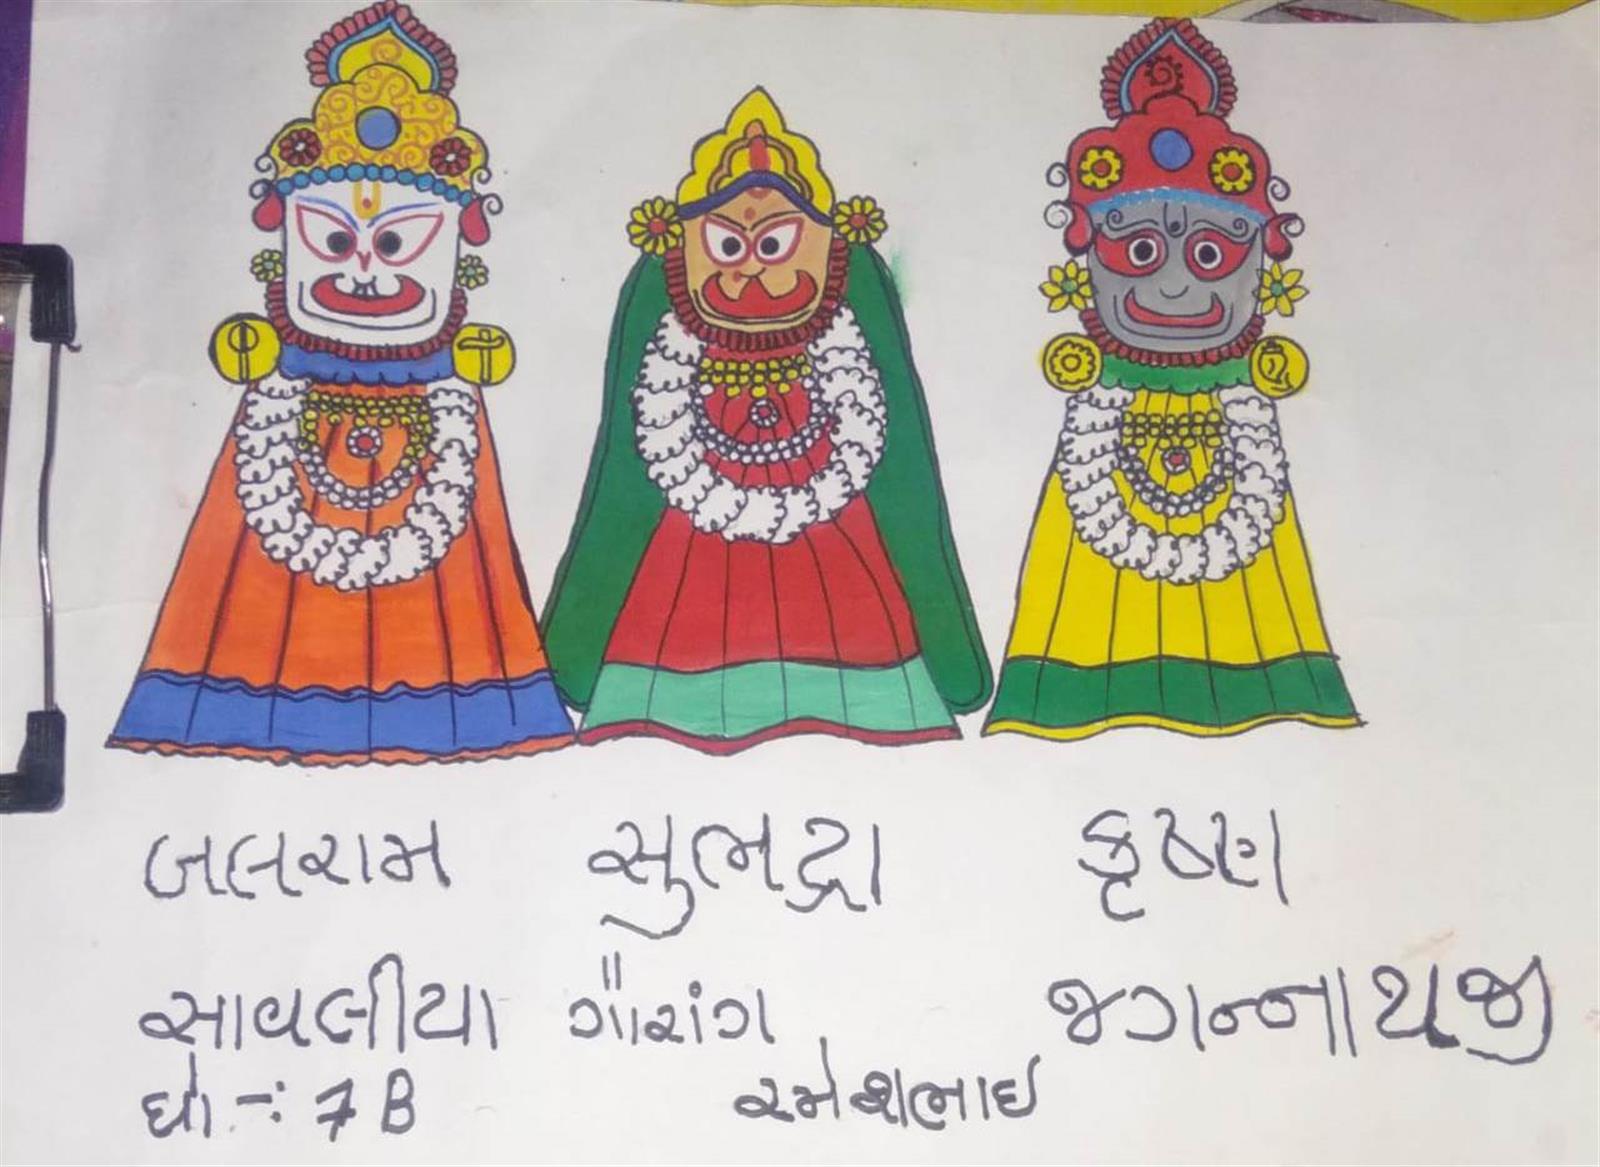 બલરામ સુભદ્રા કૃષ્ણ
સાવલીયા ગૌરાંગ જગન્નાથજી
ધો -: 7 B રમેશભાઇ